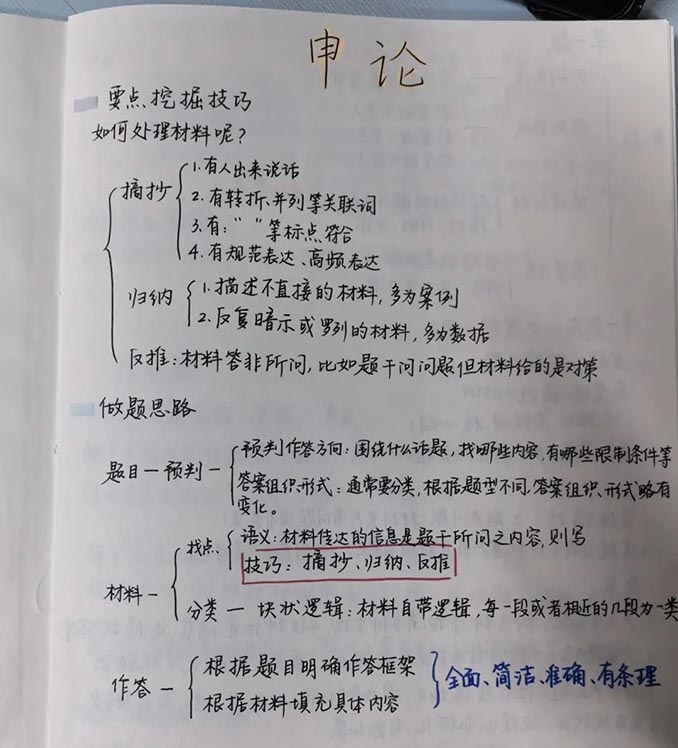 申论
要点挖掘技巧
如何处理材料呢？
摘抄
1.有人出来说话
2.有转折、并列等关联词
3.有：“ ”等标点符合
4.有规范表达、高频表达
归纳
1.描述不直接的材料，多为案例
2.反复暗示或罗列的材料，多为数据
反推：材料答非所问，比如题干问问题但材料给的是对策
做题思路
题目－预判－
预判作答方向：围绕什么话题，找哪些内容，有哪些限制条件等
答案组织形式：通常要分类，根据题型不同，答案组织、形式略有
变化。
材料－
找点、
语义：材料传达的信息是题干所问之内容，则写
技巧：摘抄、归纳、反推
分类－块状逻辑：材料自带逻辑，每一段或者相近的几段为一类
作答－
根据题目明确作答框架
根据材料填充具体内容
全面、简洁、准确、有条理